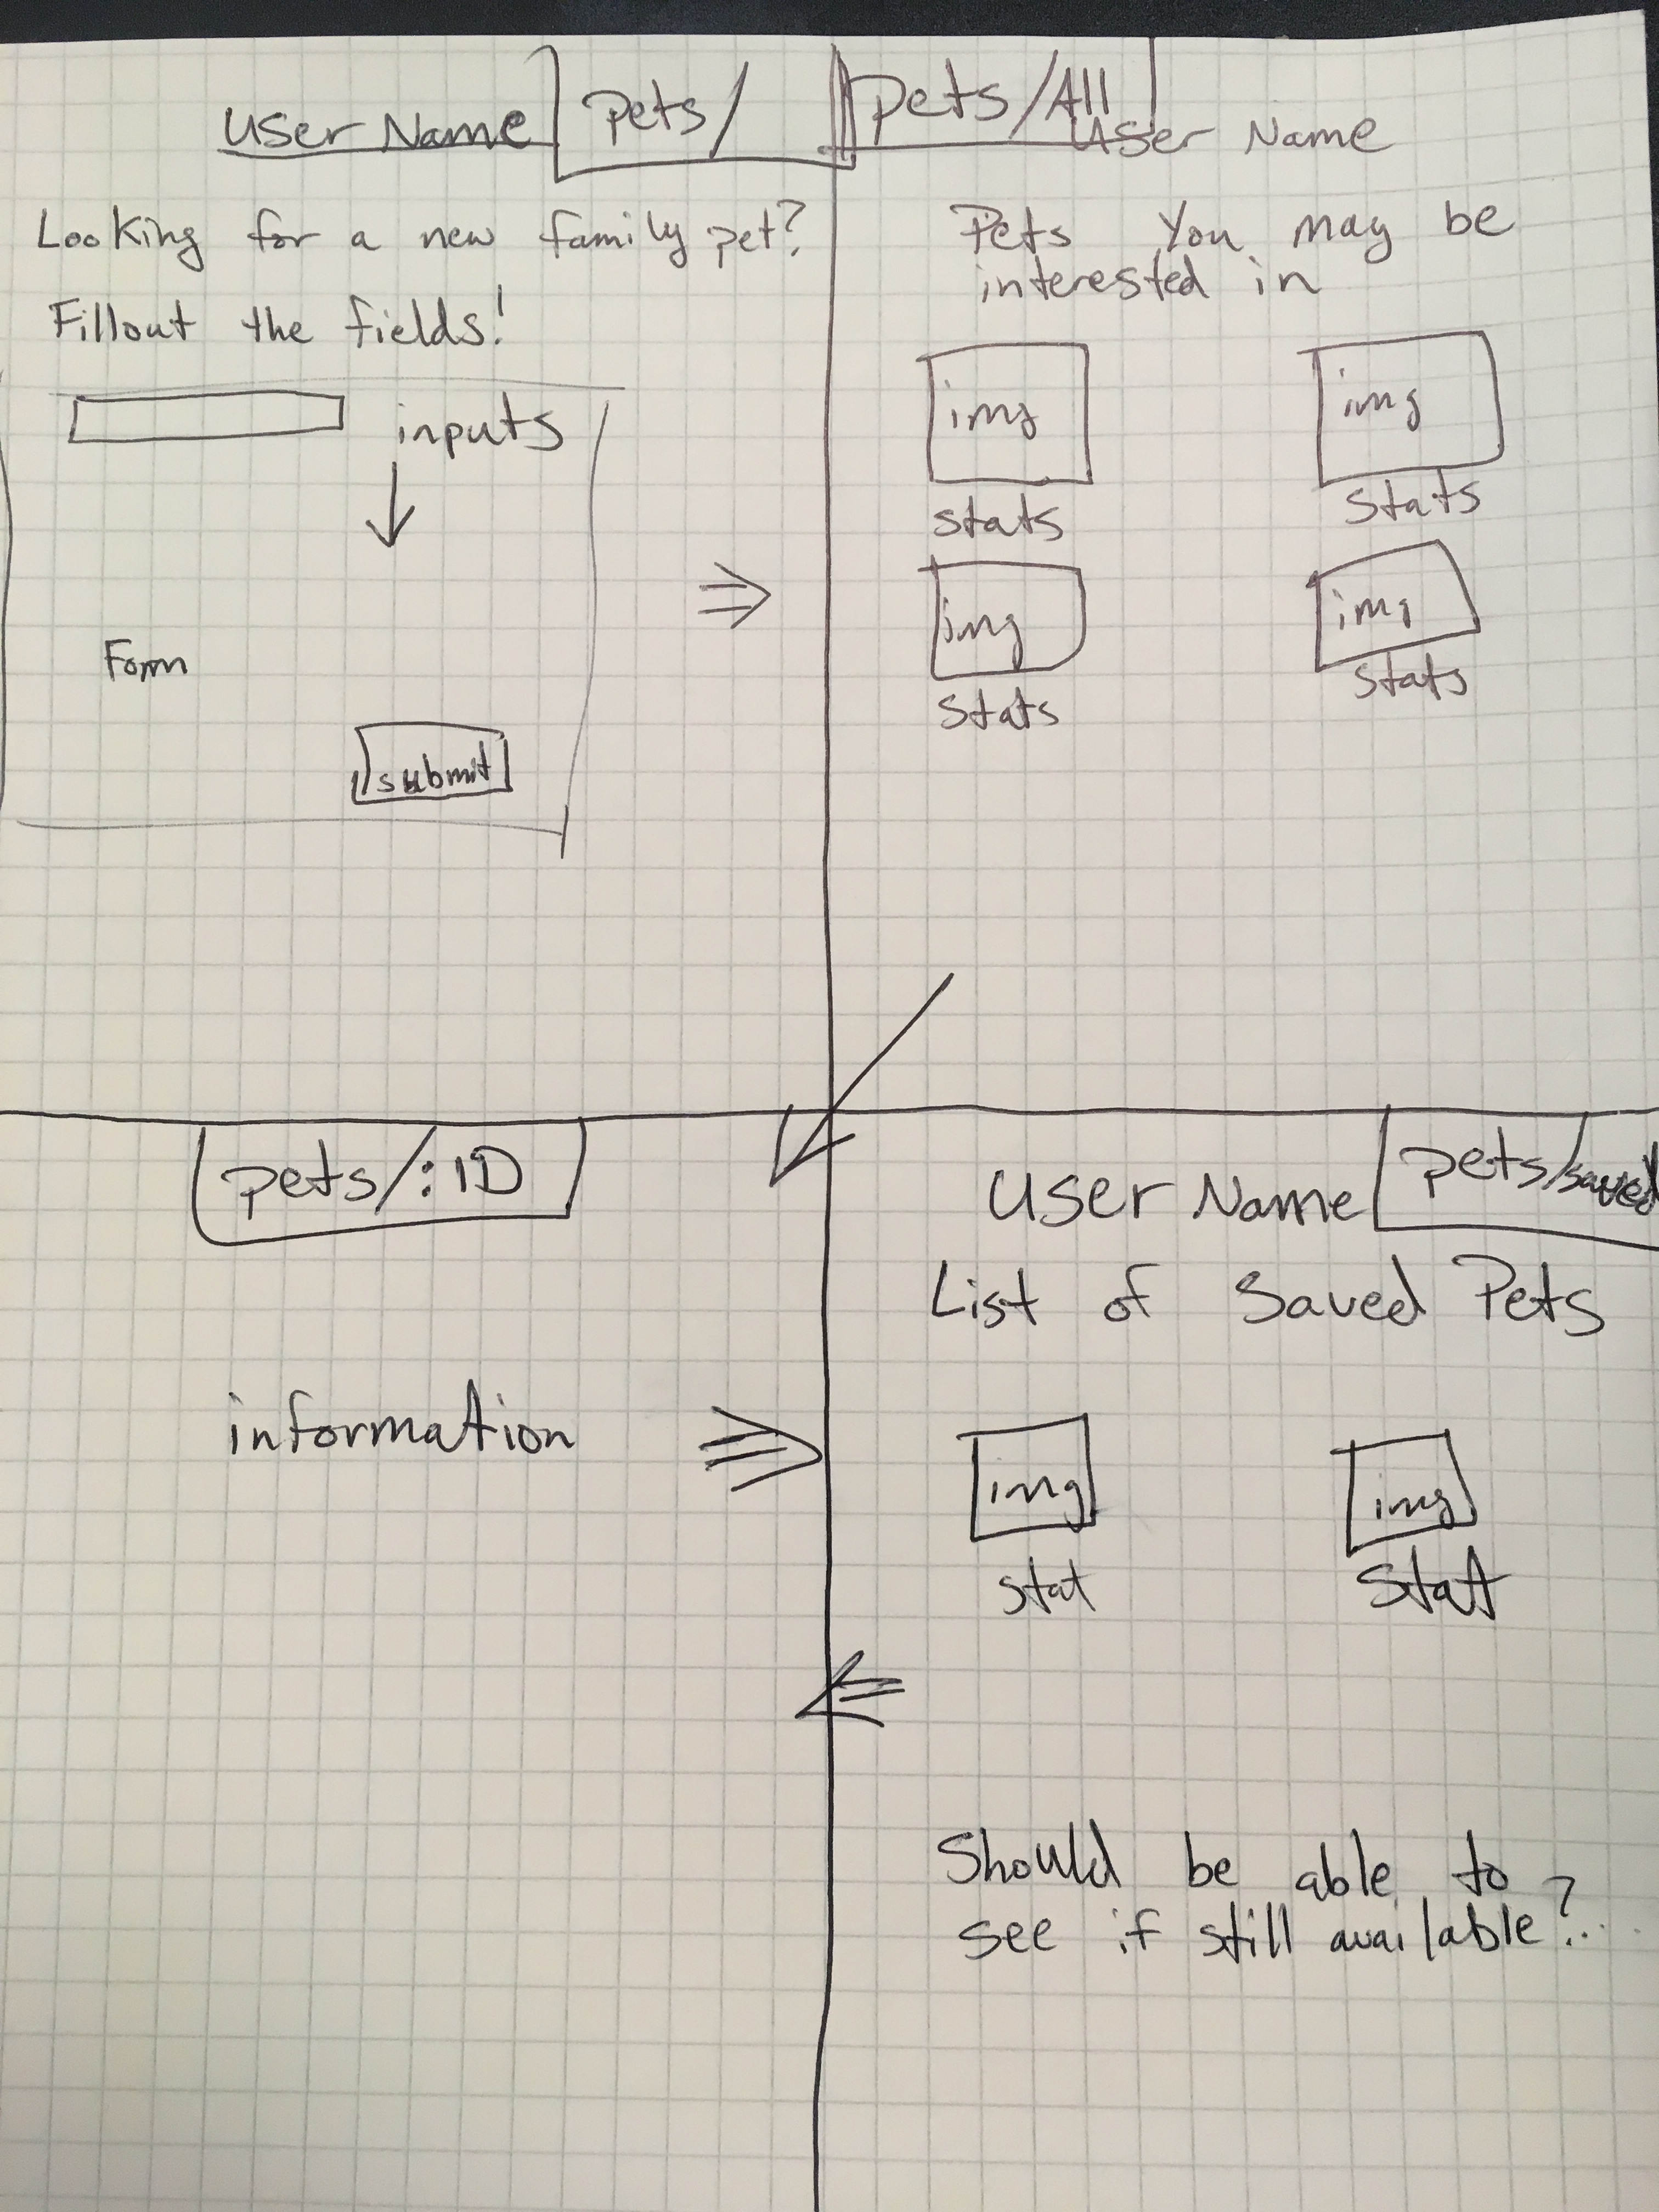 User Name pets/
Looking for a new family pet?
Fillout the fields!
inputs
Form
submit
pets/All
User Name
Pets You may be
interested in
img
img
stats
stats
img
img
stats
stats
pets/:ID
information
User Name pets/saved
List of Saved Pets
img
img
stat
stat
Should be able to
see if still available?..